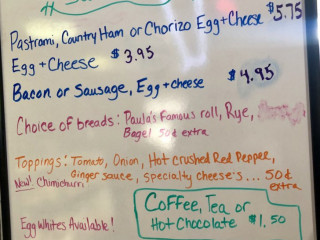 Pastrami, Country Ham or Chorizo Egg+Cheese $5.75
Egg+Cheese $3.95
Bacon or Sausage, Egg+cheese $4.95
Choice of breads: Paula's Famous roll, Rye,
Bagel 50¢ extra
Toppings: Tomato, Onion, Hot crushed Red Pepper,
New! Chimichurri, Ginger sauce, Specialty cheese's... 50¢
extra
Egg Whites Available!
Coffee, Tea or
Hot Chocolate $1.50